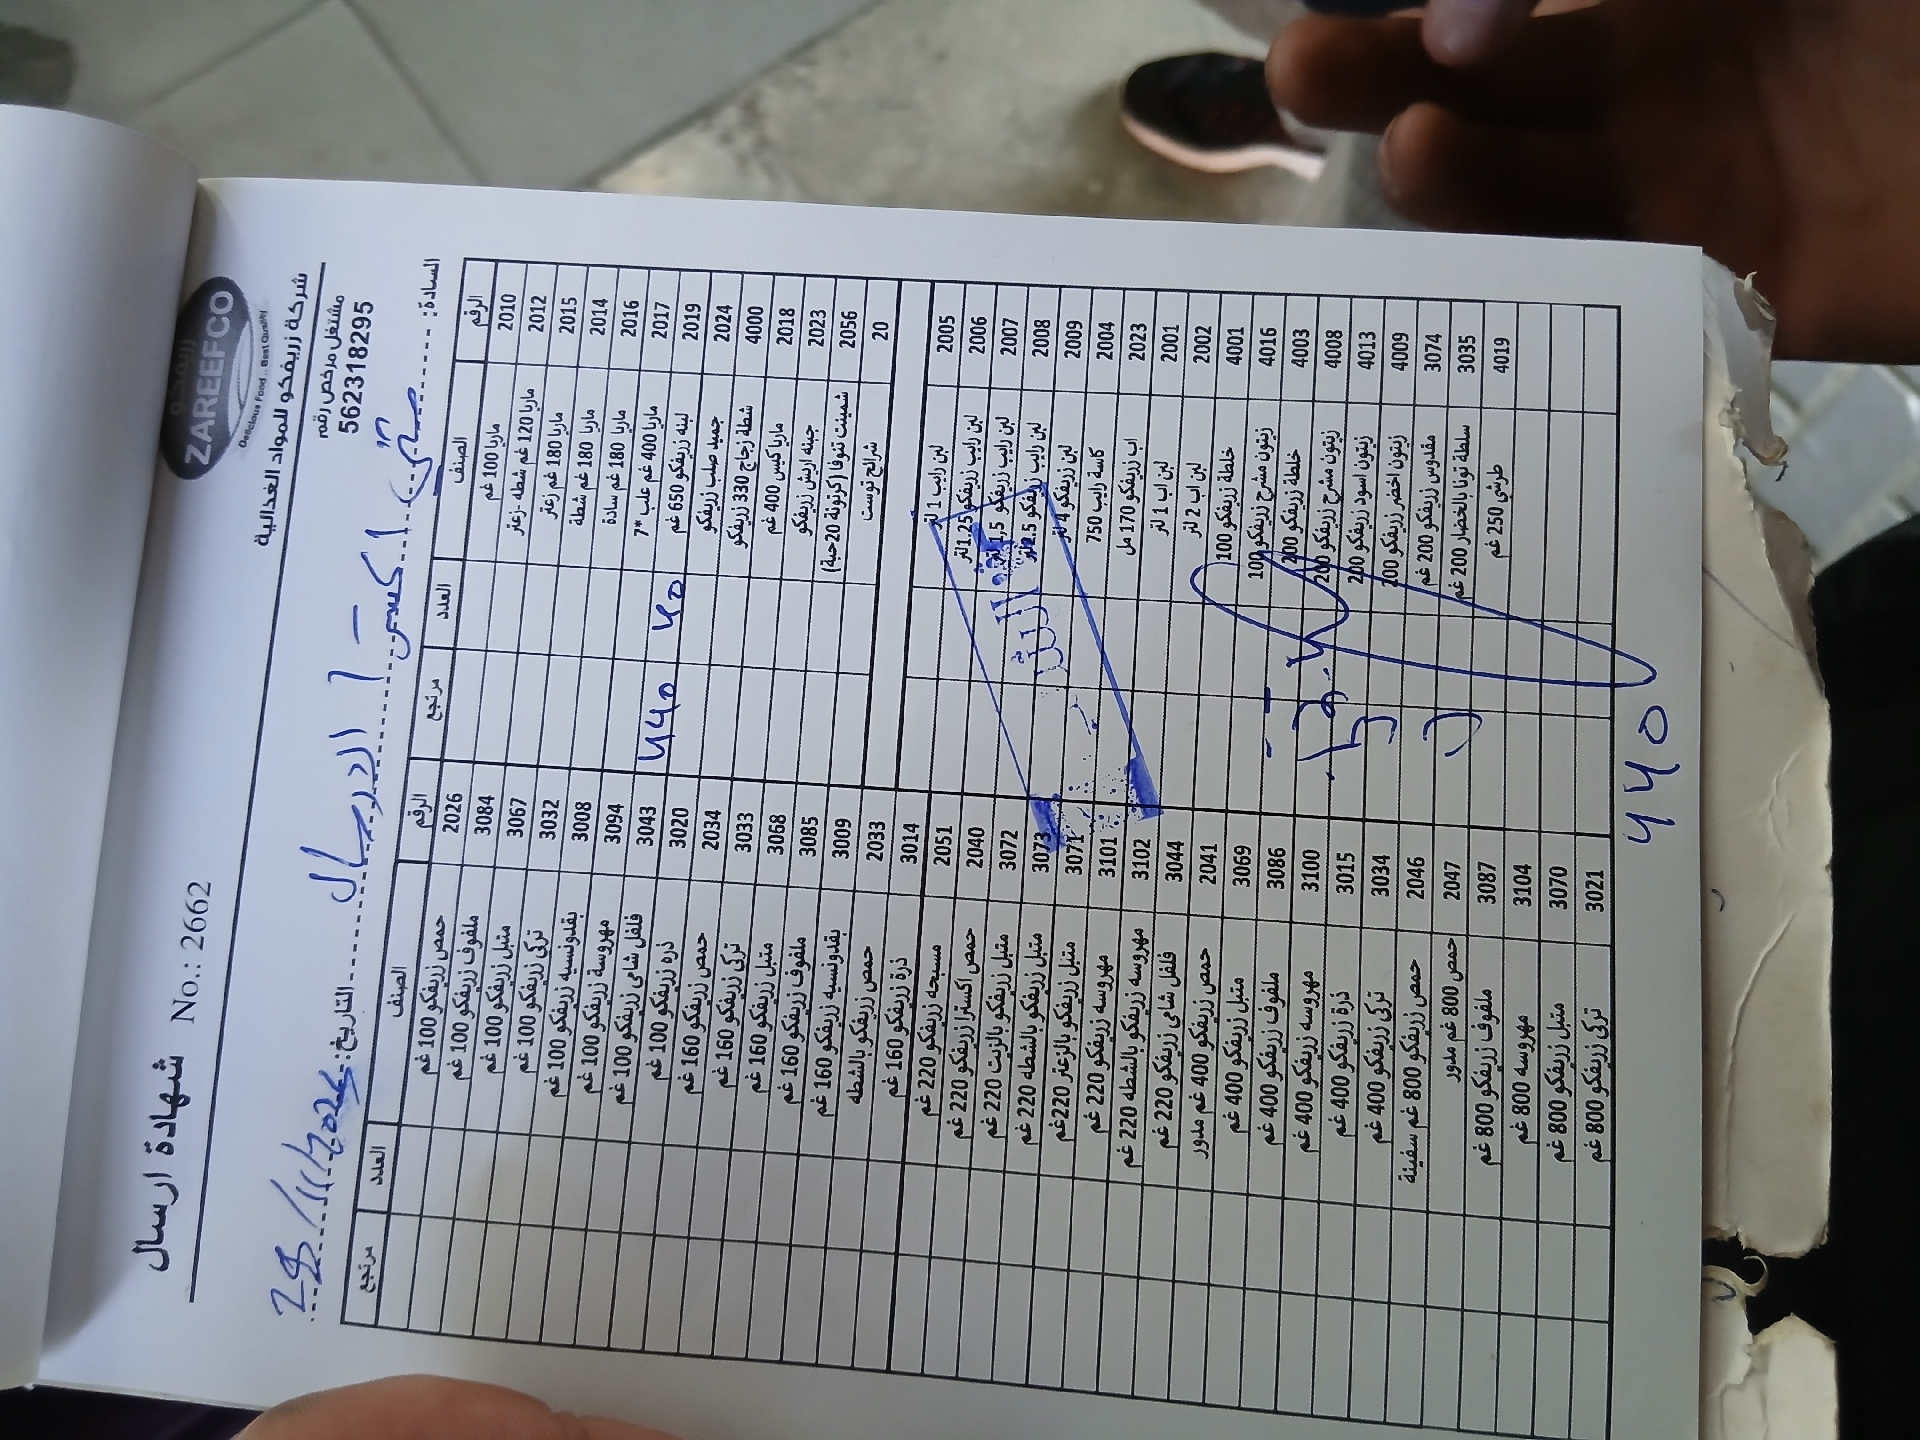 زريفكو
ZAREEFCO
Delicious Food .. Best Quality
شركة زريفكو للمواد الغذائية
مشتغل مرخص رقم
562318295
شهادة ارسال No.: 2662
السادة:
التاريخ:
الرقم الصنف العدد مرتجع الرقم الصنف العدد مرتجع
2010 ماريا 100 غم 2026 حمص زريفكو 100 غم
2012 ماريا 120 غم شطه -زعتر 3084 ملفوف زريفكو 100 غم
2015 ماريا 180 غم زعتر 3067 متبل زريفكو 100 غم
2014 ماريا 180 غم شطة 3032 تركي زريفكو 100 غم
2016 ماريا 180 غم سادة 3008 بقدونسيه زريفكو 100 غم
2017 ماريا 400 غم علب *7 3094 مهروسة زريفكو 100 غم
2019 لبنه زريفكو 650 غم 3043 فلفل شامي زريفكو 100 غم
2024 جميد صلب زريفكو 3020 ذره زريفكو 100 غم
4000 شطة زجاج 330 زريفكو 2034 حمص زريفكو 160 غم
2018 ماريا كيس 400 غم 3033 تركي زريفكو 160 غم
2023 جبنه اريش زريفكو 3068 متبل زريفكو 160 غم
2056 شمينت تنوفا (كرتونة 20حبة) 3085 ملفوف زريفكو 160 غم
20 شرائح توست 3009 بقدونسيه زريفكو 160 غم
2033 حمص زريفكو بالشطه
3014 ذرة زريفكو 160 غم
2005 لبن رايب 1 لتر 2051 مسبحه زريفكو 220 غم
2006 لبن رايب زريفكو 1.25 لتر 2040 حمص اكسترا زريفكو 220 غم
2007 لبن رايب زريفكو 1,5 لتر 3072 متبل زريفكو بالزيت 220 غم
2008 لبن رايب زريفكو 2.5 لتر 3073 متبل زريفكو بالشطه 220 غم
2009 لبن زريفكو 4 لتر 3071 متبل زريفكو بالزعتر 220 غم
2004 كاسة رايب 750 3101 مهروسه زريفكو 220 غم
2023 اب زريفكو 170 مل 3102 مهروسه زريفكو بالشطه 220 غم
2001 لبن اب 1 لتر 3044 فلفل شامي زريفكو 220 غم
2002 لبن اب 2 لتر 2041 حمص زريفكو 400 غم مدور
4001 خلطة زريفكو 100 3069 متبل زريفكو 400 غم
4016 زيتون مشرح زريفكو 100 3086 ملفوف زريفكو 400 غم
4003 خلطة زريفكو 200 3100 مهروسه زريفكو 400 غم
4008 زيتون مشرح زريفكو 200 3015 ذرة زريفكو 400 غم
4013 زيتون اسود زريفكو 200 3034 تركي زريفكو 400 غم
4009 زيتون اخضر زريفكو 200 2046 حمص زريفكو 800 غم سفينة
3074 مقدوس زريفكو 200 غم 2047 حمص 800 غم مدور
3035 سلطة تونا بالخضار 200 غم 3087 ملفوف زريفكو 800 غم
4019 طرشي 250 غم 3104 مهروسه 800 غم
3070 متبل زريفكو 800 غم
3021 تركي زريفكو 800 غم
440